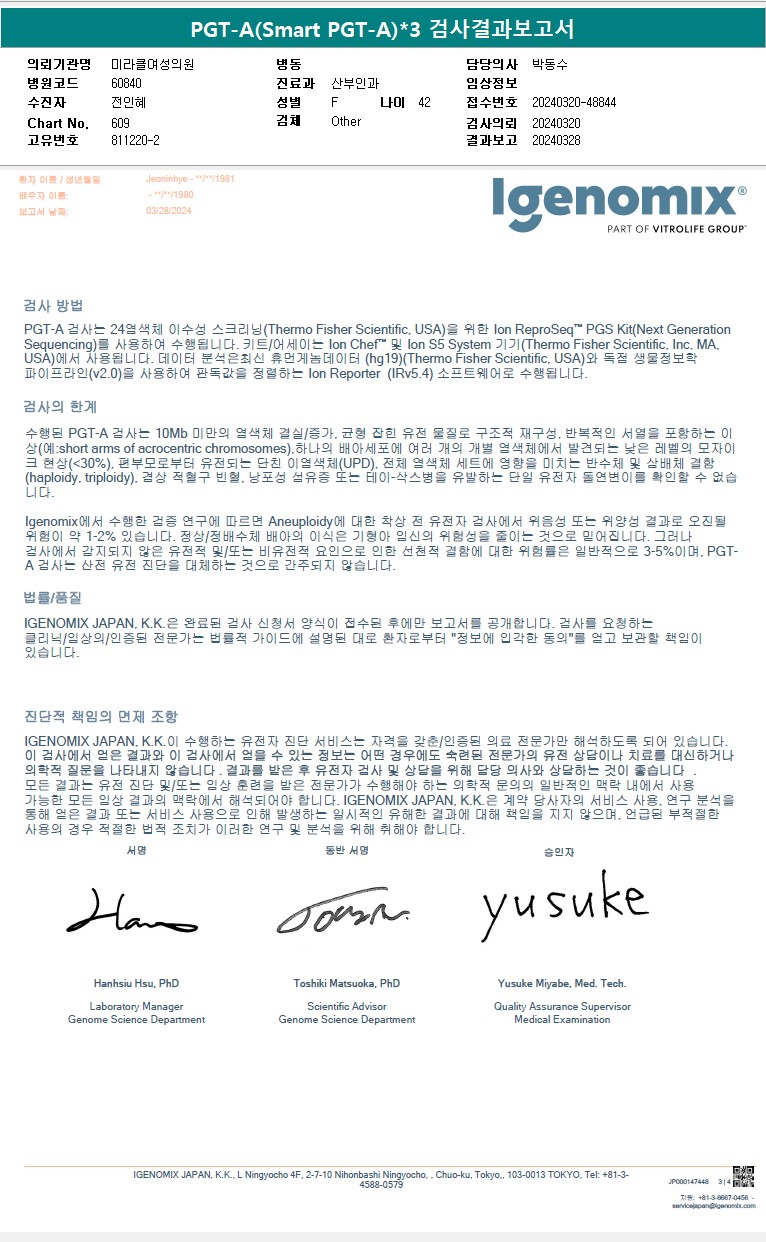 PGT-A(Smart PGT-A)*3 검사결과보고서
의뢰기관명 미라클여성의원 병동 담당의사 박동수
병원코드 60840 진료과 산부인과 임상정보
수진자 전인혜 성별 F 나이 42 접수번호 20240320-48844
Chart No. 609 검체 Other 검사의뢰 20240320
고유번호 811220-2 결과보고 20240328
환자 이름 / 생년월일 Jeoninhye - **/**/1981
배우자 이름: - **/**/1980
보고서 날짜: 03/28/2024
Igenomix®
PART OF VITROLIFE GROUP™
검사 방법
PGT-A 검사는 24염색체 이수성 스크리닝(Thermo Fisher Scientific, USA)을 위한 Ion ReproSeq™ PGS Kit(Next Generation
Sequencing)를 사용하여 수행됩니다. 키트/어세이는 Ion Chef™ 및 Ion S5 System 기기(Thermo Fisher Scientific, Inc, MA,
USA)에서 사용됩니다. 데이터 분석은최신 휴먼게놈데이터 (hg19)(Thermo Fisher Scientific, USA)와 독점 생물정보학
파이프라인(v2.0)을 사용하여 판독값을 정렬하는 Ion Reporter (IRv5.4) 소프트웨어로 수행됩니다.
검사의 한계
수행된 PGT-A 검사는 10Mb 미만의 염색체 결실/증가, 균형 잡힌 유전 물질로 구조적 재구성, 반복적인 서열을 포함하는 이
상(예:short arms of acrocentric chromosomes),하나의 배아세포에 여러 개의 개별 염색체에서 발견되는 낮은 레벨의 모자이
크 현상(<30%), 편부모로부터 유전되는 단친 이염색체(UPD), 전체 염색체 세트에 영향을 미치는 반수체 및 삼배체 결함
(haploidy, triploidy), 겸상 적혈구 빈혈, 낭포성 섬유증 또는 테이-삭스병을 유발하는 단일 유전자 돌연변이를 확인할 수 없습
니다.
Igenomix에서 수행한 검증 연구에 따르면 Aneuploidy에 대한 착상 전 유전자 검사에서 위음성 또는 위양성 결과로 오진될
위험이 약 1-2% 있습니다. 정상/정배수체 배아의 이식은 기형아 임신의 위험성을 줄이는 것으로 믿어집니다. 그러나
검사에서 감지되지 않은 유전적 및/또는 비유전적 요인으로 인한 선천적 결함에 대한 위험률은 일반적으로 3-5%이며, PGT-
A 검사는 산전 유전 진단을 대체하는 것으로 간주되지 않습니다.
법률/품질
IGENOMIX JAPAN, K.K.은 완료된 검사 신청서 양식이 접수된 후에만 보고서를 공개합니다. 검사를 요청하는
클리닉/임상의/인증된 전문가는 법률적 가이드에 설명된 대로 환자로부터 "정보에 입각한 동의"를 얻고 보관할 책임이
있습니다.
진단적 책임의 면제 조항
IGENOMIX JAPAN, K.K.이 수행하는 유전자 진단 서비스는 자격을 갖춘/인증된 의료 전문가만 해석하도록 되어 있습니다.
이 검사에서 얻은 결과와 이 검사에서 얻을 수 있는 정보는 어떤 경우에도 숙련된 전문가의 유전 상담이나 치료를 대신하거나
의학적 질문을 나타내지 않습니다 . 결과를 받은 후 유전자 검사 및 상담을 위해 담당 의사와 상담하는 것이 좋습니다 .
모든 결과는 유전 진단 및/또는 임상 훈련을 받은 전문가가 수행해야 하는 의학적 문의의 일반적인 맥락 내에서 사용
가능한 모든 임상 결과의 맥락에서 해석되어야 합니다. IGENOMIX JAPAN, K.K.은 계약 당사자의 서비스 사용, 연구 분석을
통해 얻은 결과 또는 서비스 사용으로 인해 발생하는 일시적인 유해한 결과에 대해 책임을 지지 않으며, 언급된 부적절한
사용의 경우 적절한 법적 조치가 이러한 연구 및 분석을 위해 취해야 합니다.
서명 동반 서명 승인자
yusuke
Hanhsiu Hsu, PhD Toshiki Matsuoka, PhD Yusuke Miyabe, Med. Tech.
Laboratory Manager Scientific Advisor Quality Assurance Supervisor
Genome Science Department Genome Science Department Medical Examination
IGENOMIX JAPAN, K.K., L Ningyocho 4F, 2-7-10 Nihonbashi Ningyocho, , Chuo-ku, Tokyo,, 103-0013 TOKYO, Tel: +81-3-
4588-0579
JP000147448 3 | 4
지원: +81-3-6667-0456 -
servicejapan@igenomix.com